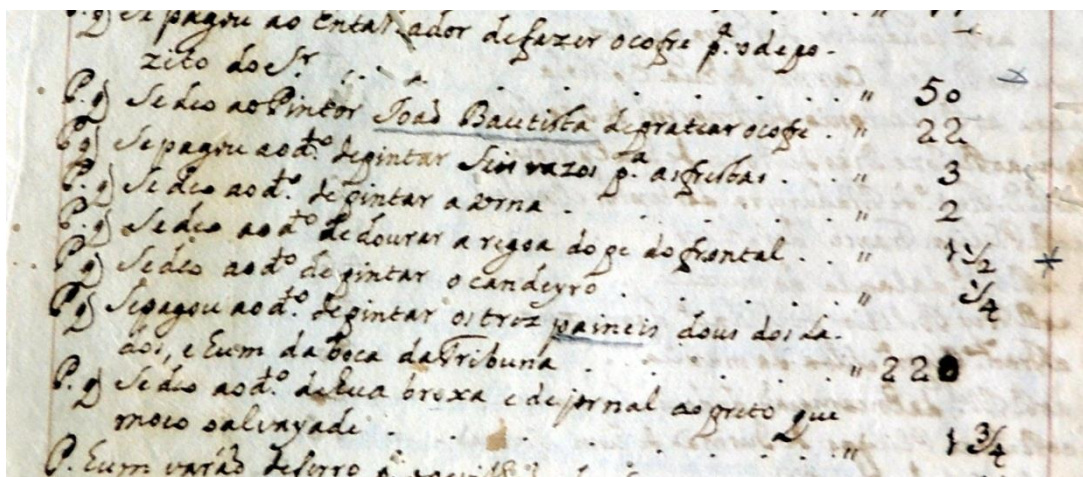 P. q̃ Se pagou ao Entalhador de fazer o cofre p.ª o depo-
zito do S.r . . . " 50
P. q̃ Se deo ao Pintor Joaõ Bautista de pratear o cofre . " 22
P. q̃ Se pagou ao d.º de pintar Seis vazos p.ª as frestas . . " 3
P. q̃ Se deo ao d.º de pintar a urna . . . " 2
P. q̃ Se deo ao d.º de dourar a regoa do pe do frontal . . " 1 1/2
P. q̃ Se deo ao d.º de pintar o candeyro . . . " 3/4
P. q̃ Se pagou ao d.º de pintar os trez paineis dous dos la-
dos, e Eum da boca da Tribuna . . . " 220
P. q̃ Se deo ao d.º de hua broxa e de jornal ao preto que
moeo . . . " 1 3/4
P. Eum varaõ de ferro p.ª